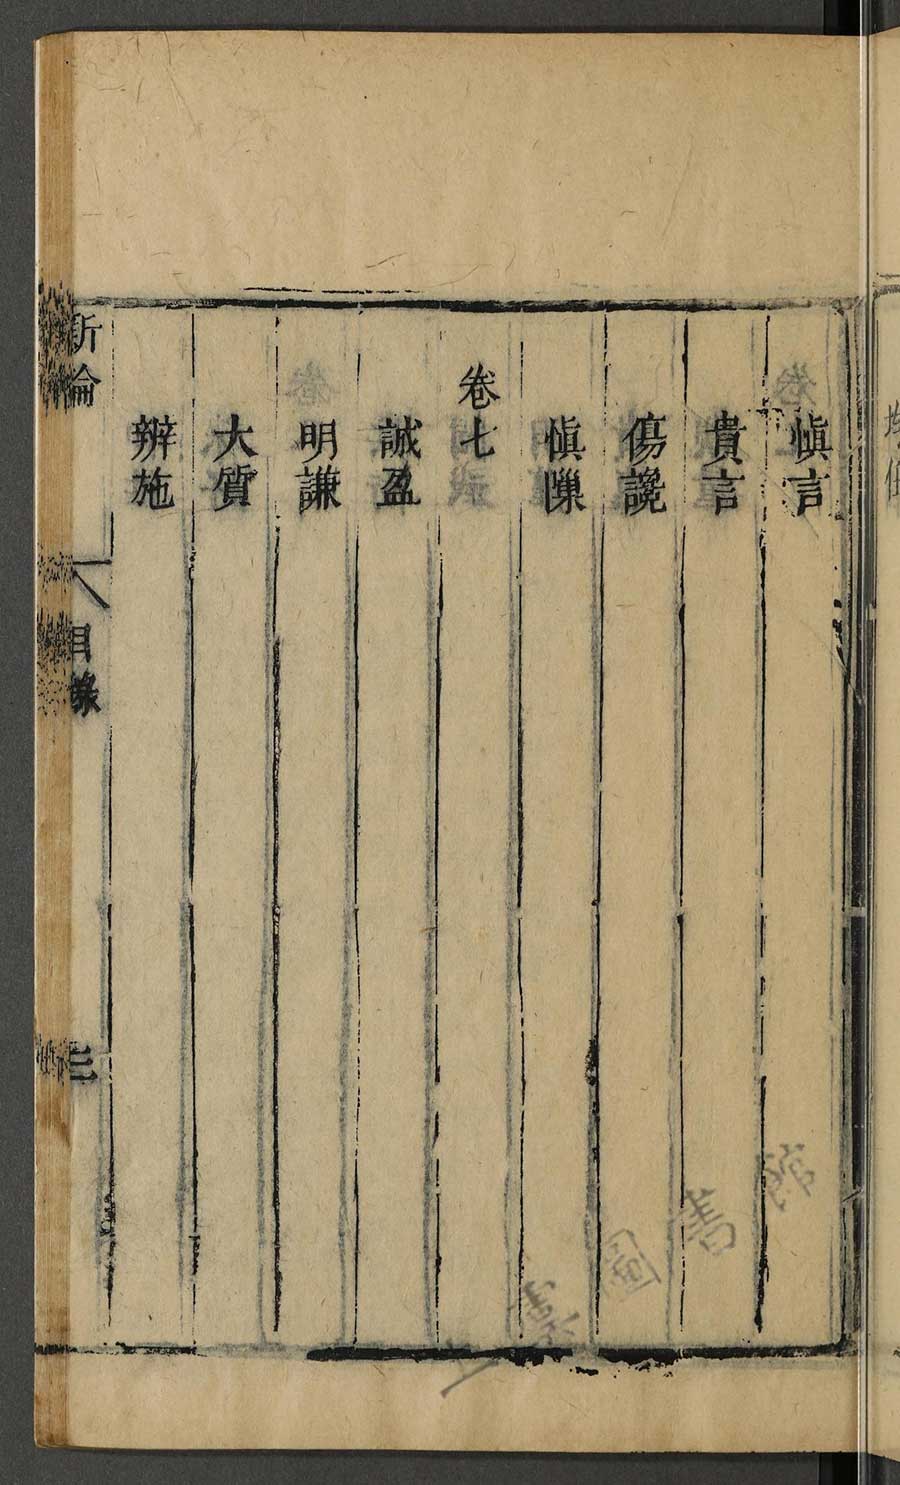 慎言
貴言
傷讒
慎隟
卷七
誡盈
明謙
大質
辨施
新論
目錄
三